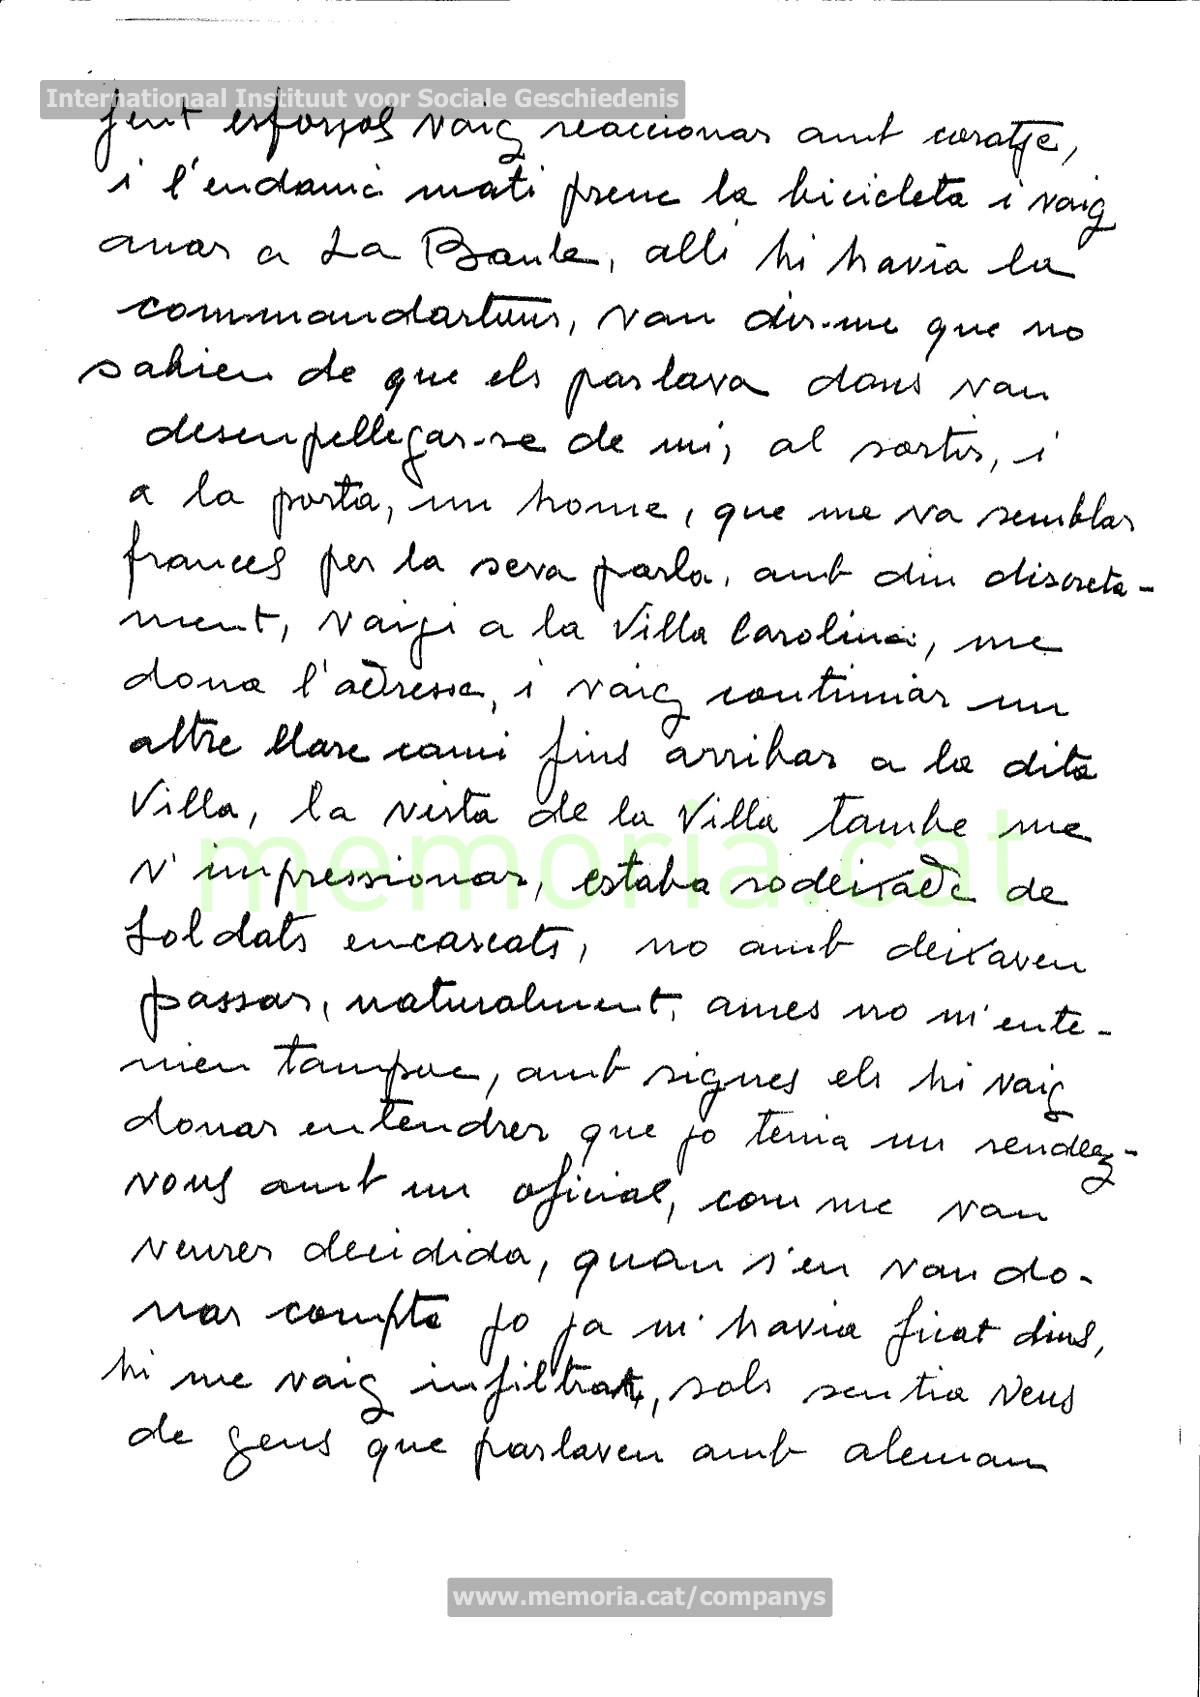 Internationaal Instituut voor Sociale Geschiedenis
fent esforços vaig reaccionar amb coratje,
i l'endamà mati prenc la bicicleta i vaig
anar a La Baule, alli hi havia la
commandartur, van dir-me que no
sabien de que els parlava dons van
desenpellegar-se de mi, al sortir, i
a la porta, un home, que me va semblar
frances per la seva parla, amb diu discreta-
ment, vaigi a la Villa Carolina, me
dona l'adressa, i vaig continuar un
altre llarc cami fins arribar a la dita
Villa, la vista de la Villa tambe me
v'impressionar, estaba rodeixada de
soldats encascats, no amb deixaven
passar, naturalment, ames no m'ente-
nien tampoc, amb signes els hi vaig
donar entendrer que jo tenia un rendez-
vous amb un oficial, com me van
veurer decidida, quan s'en van do-
nar compte jo ja m'havia ficat dins,
hi me vaig infiltrar, sols sentia veus
de gens que parlaven amb aleman
memoria.cat
www.memoria.cat/companys